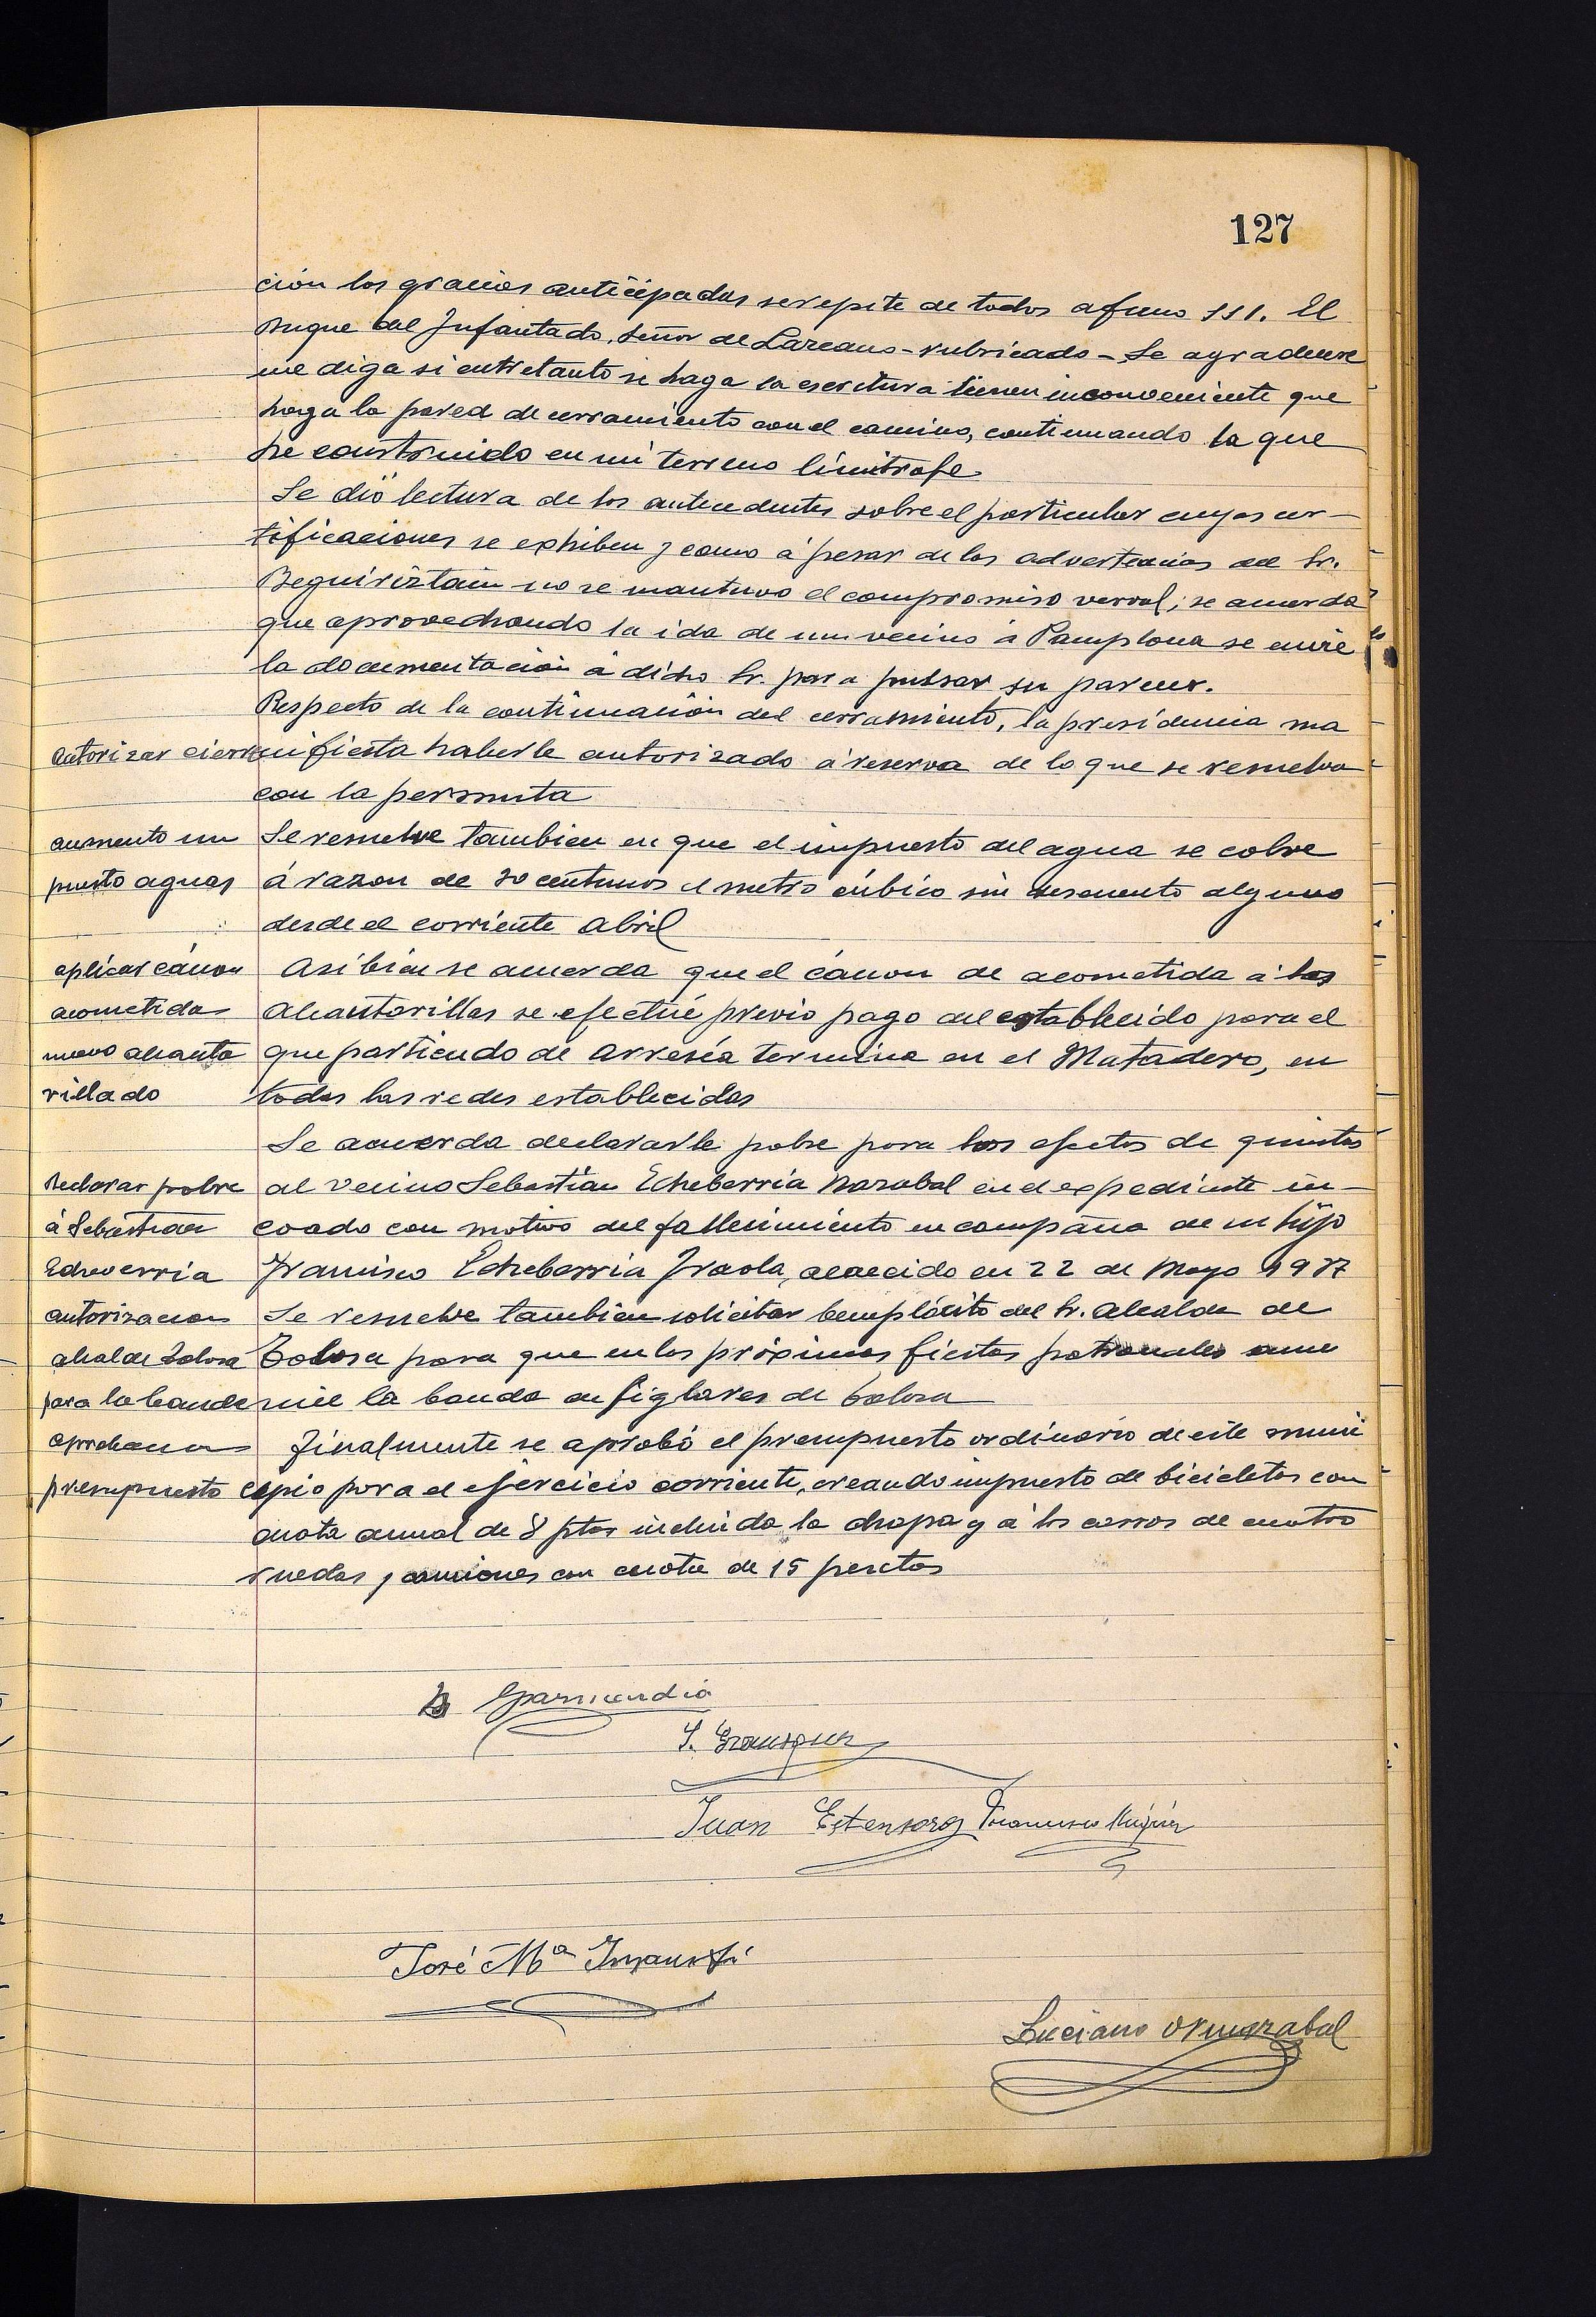 127
ción las gracias anticipadas se repite de todos afmo S S S. El
Duque del Infantado, Señor de Lazcano - rubricado - Se agradecere
me diga si entretanto se haga la escritura tienen inconveniente que
haga la pared de cerramiento con el camino, continuando la que
he construido en mi terreno limitrofe
Se dió lectura de los antecedentes sobre el particular cuyas cer-
tificaciones se exhiben y como á pesar de las advertencias del Sr.
Beguiriztain no se mantuvo el compromiso verval; se acuerda
que aprovechando la ida de un vecino á Pamplona se envie
la documentación á dicho Sr. para pulsar su parecer.
Respecto de la continuación del cerramiento, la presidencia ma
autorizar cierre nifiesta haberle autorizado á reserva de lo que se resuelva
con la permuta
aumento im Se resuelve tambien en que el impuesto del agua se cobre
puesto aguas á razon de 20 centimos el metro cúbico sin descuento alguno
desde el corriente Abril
aplicar cánon Asibien se acuerda que el cánon de acometida á las
acometidas Alcantarillas se efectúe previo pago del establecido para el
nuevo alcanta que partiendo de Arresia termina en el Matadero, en
rillado todas las redes establecidas
Se acuerda declararle pobre para los efectos de quintas
Declarar pobre al vecino Sebastián Echeberria Narabal en el expediente in-
á Sebastian coado con motivo del fallecimiento en campaña de su hijo
Echeverria Francisco Echeberria Iraola, acaecido en 22 de Mayo 1937
autorizacion Se resuelve tambien solicitar beneplácito del Sr. Alcalde de
alcalde Tolosa Tolosa para que en las próximas fiestas patronales ame
para la banda nice la banda de figlares de Tolosa
aprobacion Finalmente se aprobó el presupuesto ordinario de este muni
presupuesto cipio para el ejercicio corriente, creando impuesto de bicicletas con
cuota anual de 8 ptas incluida la chapa y á los carros de cuatro
ruedas y camiones con cuota de 15 pesetas
Garmendia
Juan Estensoro Francisco
José Mª Insausti
Luciano